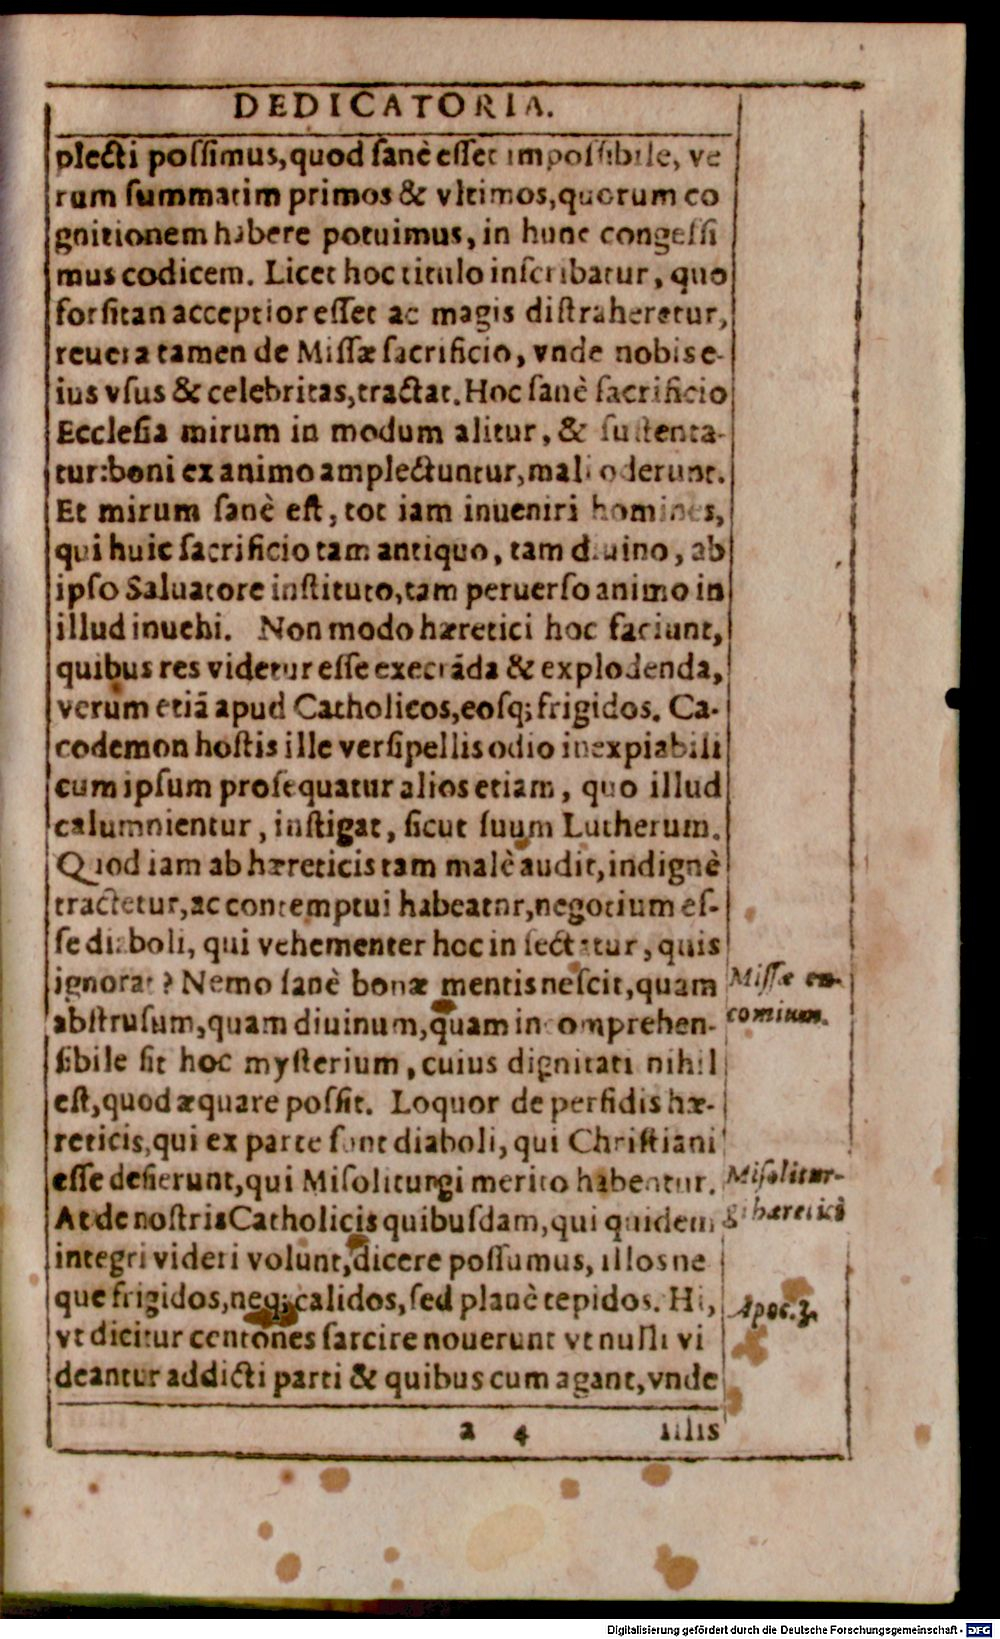 DEDICATORIA.
plecti possimus, quod sanè esset impossibile, ve
rum summatim primos & vltimos, quorum co
gnitionem habere potuimus, in hunc congessi
mus codicem. Licet hoc titulo inscribatur, quo
forsitan acceptior esset ac magis distraheretur,
reuera tamen de Missæ sacrificio, vnde nobis e-
ius vsus & celebritas, tractat. Hoc sanè sacrificio
Ecclesia mirum in modum alitur, & sustenta-
tur: boni ex animo amplectuntur, mali oderunt.
Et mirum sanè est, tot iam inueniri homines,
qui huic sacrificio tam antiquo, tam diuino, ab
ipso Saluatore instituto, tam peruerso animo in
illud inuehi. Non modo hæretici hoc faciunt,
quibus res videtur esse execrāda & explodenda,
verum etiā apud Catholicos, eosq; frigidos. Ca-
codemon hostis ille versipellis odio inexpiabili
cum ipsum prosequatur alios etiam, quo illud
calumnientur, instigat, sicut suum Lutherum.
Quod iam ab hæreticis tam malè audit, indignè
tractetur, ac contemptui habeatur, negotium es-
se diaboli, qui vehementer hoc insectatur, quis
ignorat? Nemo sanè bonæ mentis nescit, quam
abstrusum, quam diuinum, quam incomprehen-
sibile sit hoc mysterium, cuius dignitati nihil
est, quod æquare possit. Loquor de perfidis hæ-
reticis, qui ex parte sunt diaboli, qui Christiani
esse desierunt, qui Misoliturgi merito habentur.
At de nostris Catholicis quibusdam, qui quidem
integri videri volunt, dicere possumus, illos ne
que frigidos, neq; calidos, sed planè tepidos. Hi,
vt dicitur centones sarcire nouerunt vt nulli vi
deantur addicti parti & quibus cum agant, vnde
a 4 illis
Missæ en-
comium.
Misolitur-
gi hæretici
Apoc. 3.
Digitalisierung gefördert durch die Deutsche Forschungsgemeinschaft - DFG